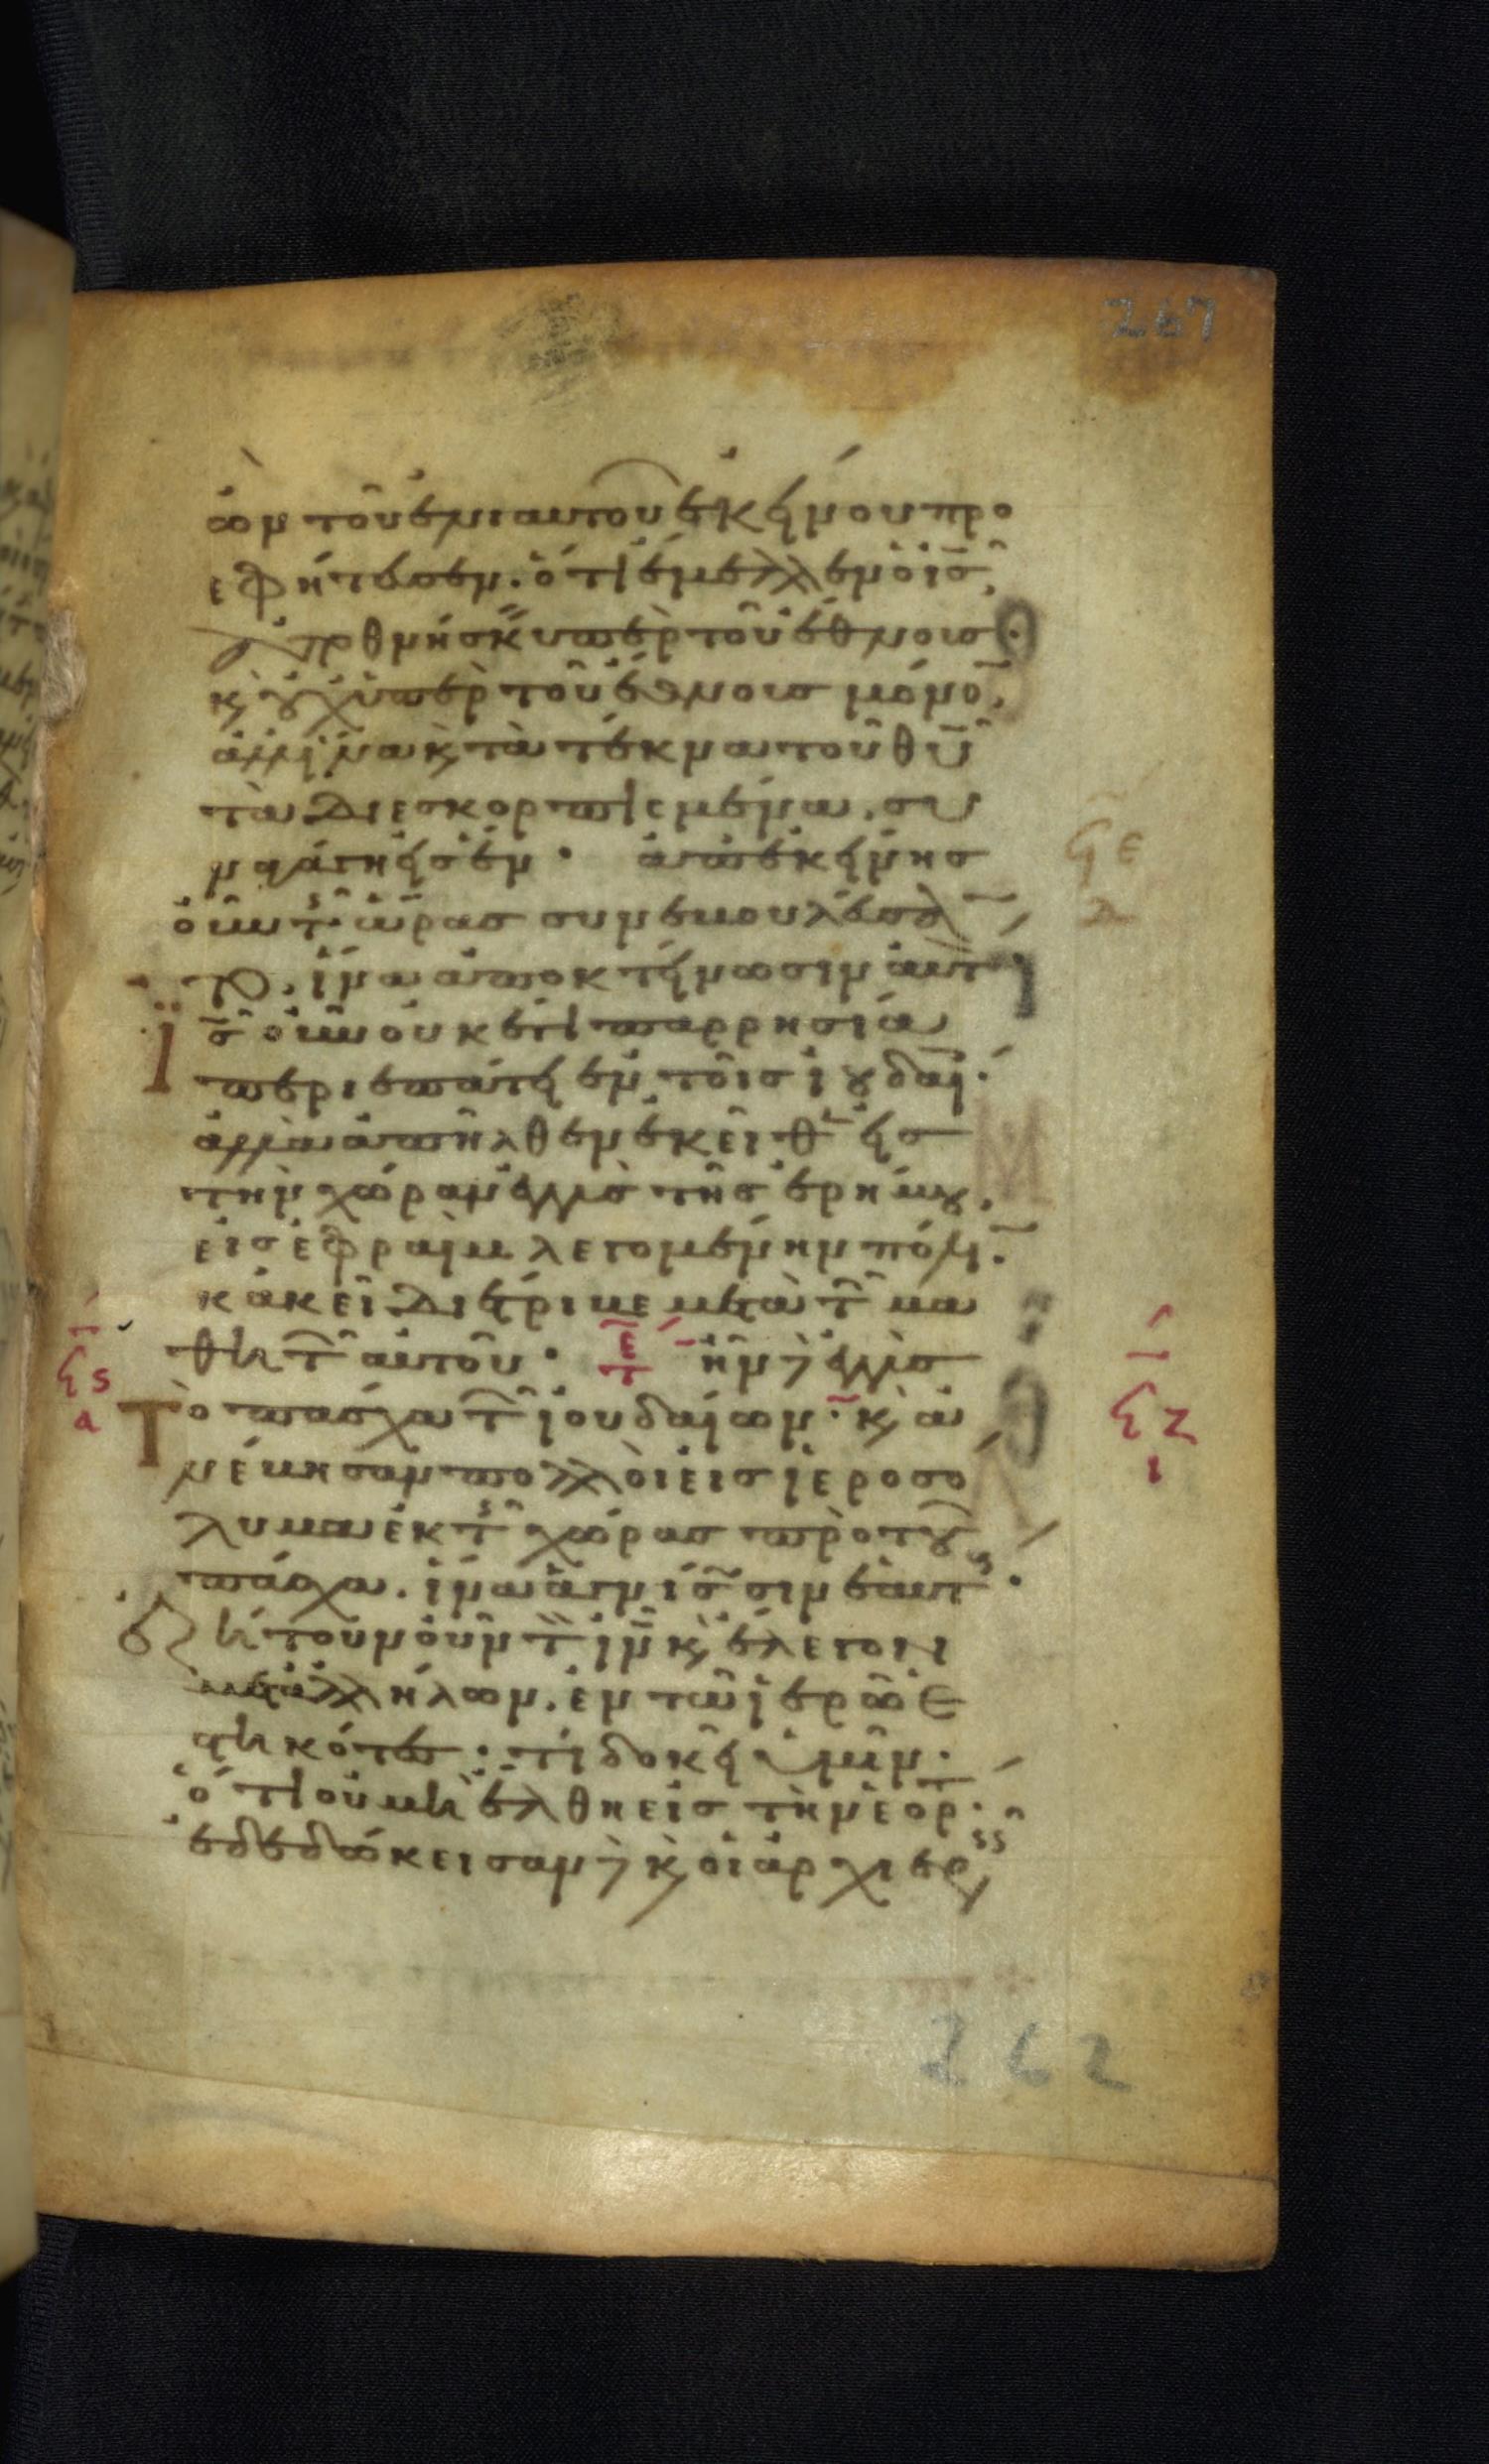 267
ὢν τοῦ ἐνιαυτοῦ ἐκείνου προ
εφήτευσεν. ὅτι ἔμελλεν ὁ ι̅ς̅
ἀποθνήσκειν ὑπὲρ τοῦ ἔθνους.
κ̀ οὐχ ὑπὲρ τοῦ ἔθνους μόνον,
ἀλλ' ἵνα κ̀ τὰ τέκνα τοῦ θ̅υ̅
τὰ διεσκορπισμένα, συ
ναγάγη εἰς ἕν. ἀπ' ἐκείνης
ϟε
δ
οὖν τῆς ὥρας συνεβουλεύσαν
το, ἵνα ἀποκτείνωσιν αὐτόν
ι̅ς̅ οὖν οὐκ ἔτι παρρησία
περιεπάτει ἐν τοῖς ἰουδαί.
ἀλλὰ ἀπῆλθεν ἐκεῖθεν εἰς
τὴν χώραν ἐγγὺς τῆς ἐρήμου,
εἰς ἐφραὶμ λεγομένην πόλιν.
κἀκεῖ διέτριβε μετὰ τῶν μα
θητῶν αὐτοῦ. τε ἦν δὲ ἐγγὺς
ϟς
α
Τὸ πάσχα τῶν ἰουδαίων. κ̀ ἀ
ϟζ
ι
νέβησαν πολλοὶ εἰς ἱεροσο
λυμα ἐκ τῆς χώρας πρὸ τοῦ
πάσχα. ἵνα ἁγνίσωσιν ἑαυτούς.
ἐζήτουν οὖν τὸν ι̅ν̅ κ̀ ἔλεγον
μετ' ἀλλήλων. ἐν τῶ ἱερῶ ἑ
στηκότες. τί δοκεῖ ὑμῖν.
ὅτι οὐ μὴ ἔλθη εἰς τὴν ἑορτ.
ἐδεδώκεισαν δὲ κ̀ οἱ ἀρχιερεῖς
262